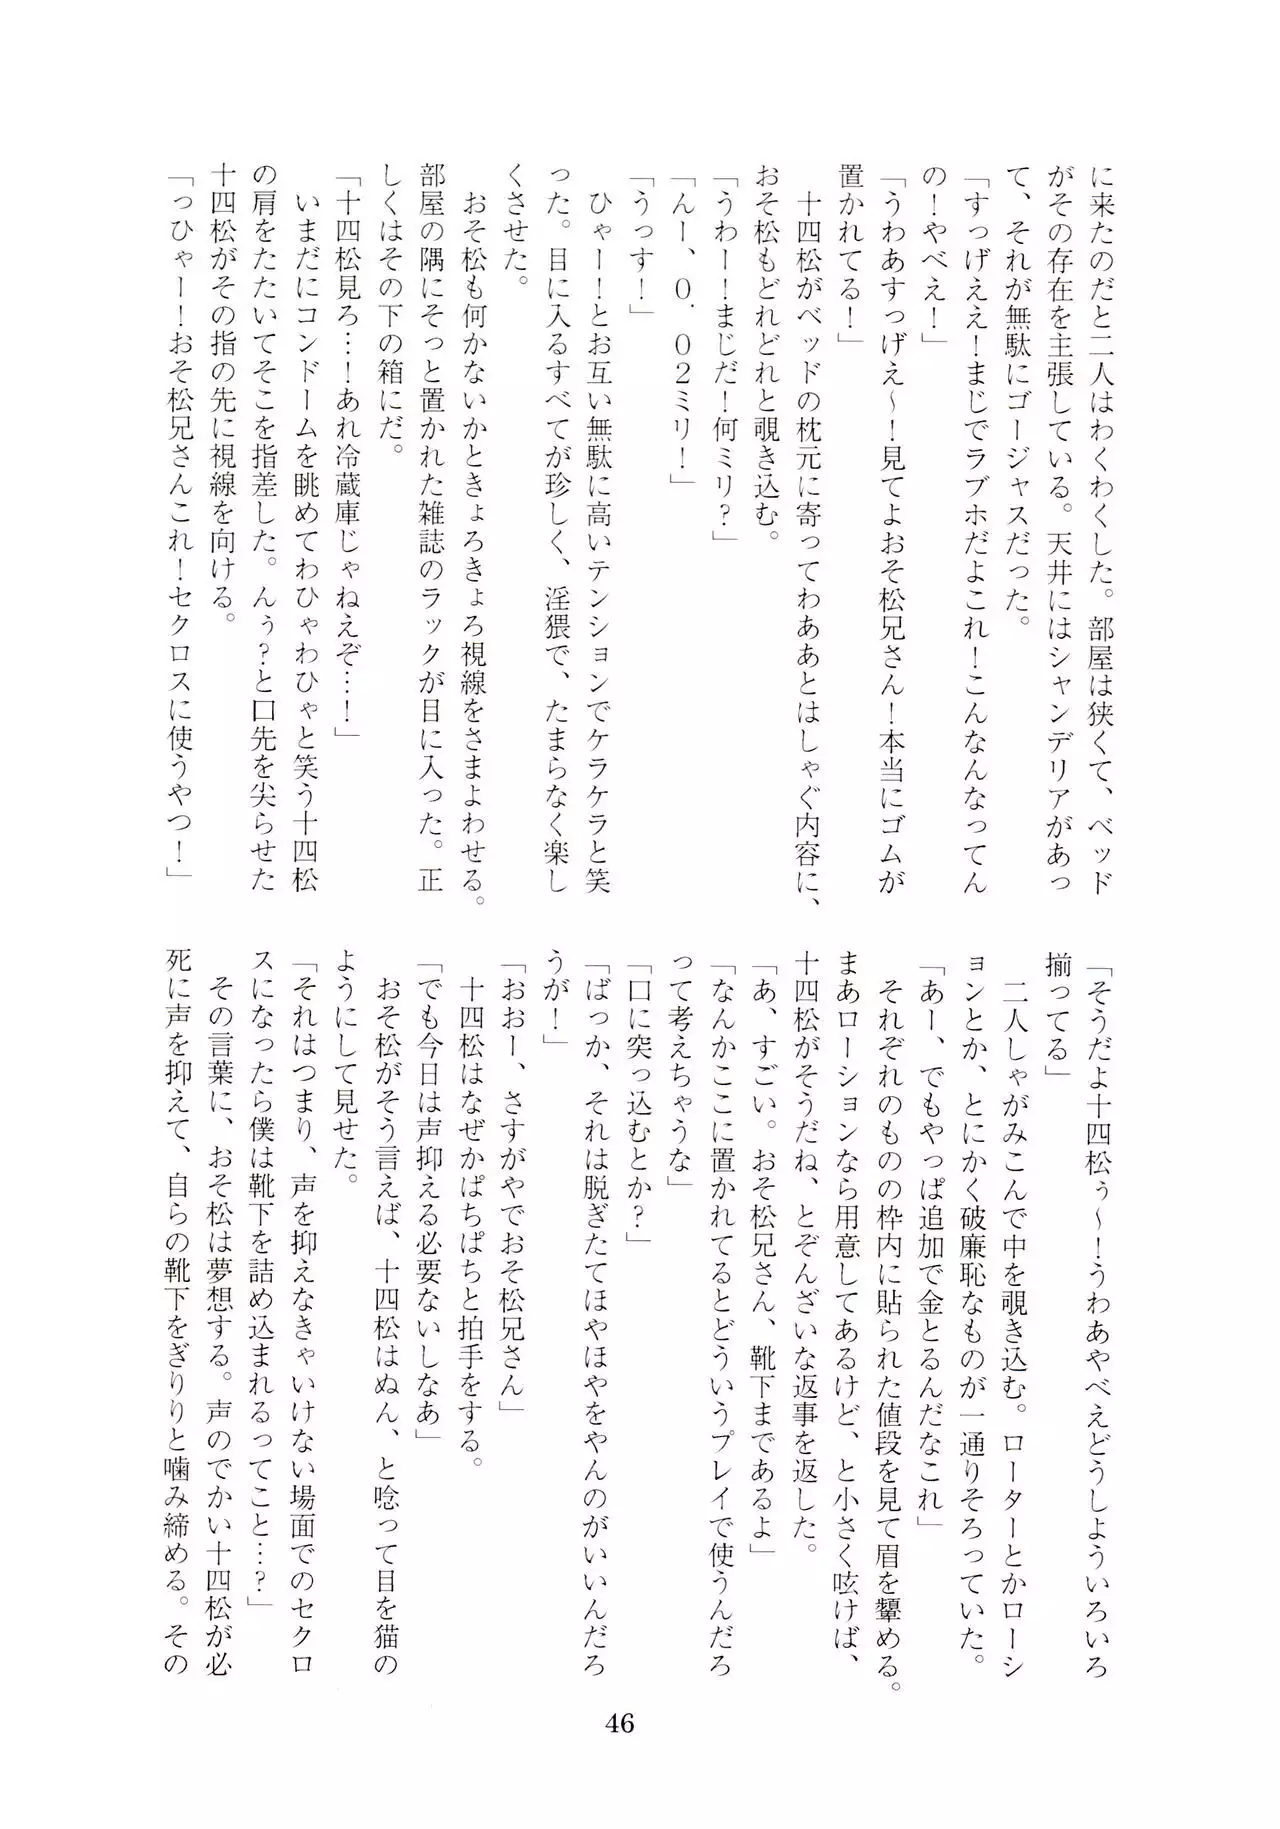 に来たのだと二人はわくわくした。部屋は狭くて、ベッド
がその存在を主張している。天井にはシャンデリアがあっ
て、それが無駄にゴージャスだった。
「すっげええ！まじでラブホだよこれ！こんなんなってん
の！やべえ！」
「うわあすっげえ～！見てよおそ松兄さん！本当にゴムが
置かれてる！」
十四松がベッドの枕元に寄ってわああとはしゃぐ内容に、
おそ松もどれどれと覗き込む。
「うわー！まじだ！何ミリ？」
「んー、０．０２ミリ！」
「うっす！」
ひゃー！とお互い無駄に高いテンションでケラケラと笑
った。目に入るすべてが珍しく、淫猥で、たまらなく楽し
くさせた。
おそ松も何かないかときょろきょろ視線をさまよわせる。
部屋の隅にそっと置かれた雑誌のラックが目に入った。正
しくはその下の箱にだ。
「十四松見ろ…！あれ冷蔵庫じゃねえぞ…！」
いまだにコンドームを眺めてわひゃわひゃと笑う十四松
の肩をたたいてそこを指差した。んぅ？と口先を尖らせた
十四松がその指の先に視線を向ける。
「っひゃー！おそ松兄さんこれ！セクロスに使うやつ！」
「そうだよ十四松ぅ～！うわあやべえどうしよういろいろ
揃ってる」
二人しゃがみこんで中を覗き込む。ローターとかローシ
ョンとか、とにかく破廉恥なものが一通りそろっていた。
「あー、でもやっぱ追加で金とるんだなこれ」
それぞれのものの枠内に貼られた値段を見て眉を顰める。
まあローションなら用意してあるけど、と小さく呟けば、
十四松がそうだね、とぞんざいな返事を返した。
「あ、すごい。おそ松兄さん、靴下まであるよ」
「なんかここに置かれてるとどういうプレイで使うんだろ
って考えちゃうな」
「口に突っ込むとか？」
「ばっか、それは脱ぎたてほやほやをやんのがいいんだろ
うが！」
「おおー、さすがやでおそ松兄さん」
十四松はなぜかぱちぱちと拍手をする。
「でも今日は声抑える必要ないしなあ」
おそ松がそう言えば、十四松はぬん、と唸って目を猫の
ようにして見せた。
「それはつまり、声を抑えなきゃいけない場面でのセクロ
スになったら僕は靴下を詰め込まれるってこと…？」
その言葉に、おそ松は夢想する。声のでかい十四松が必
死に声を抑えて、自らの靴下をぎりりと噛み締める。その
46